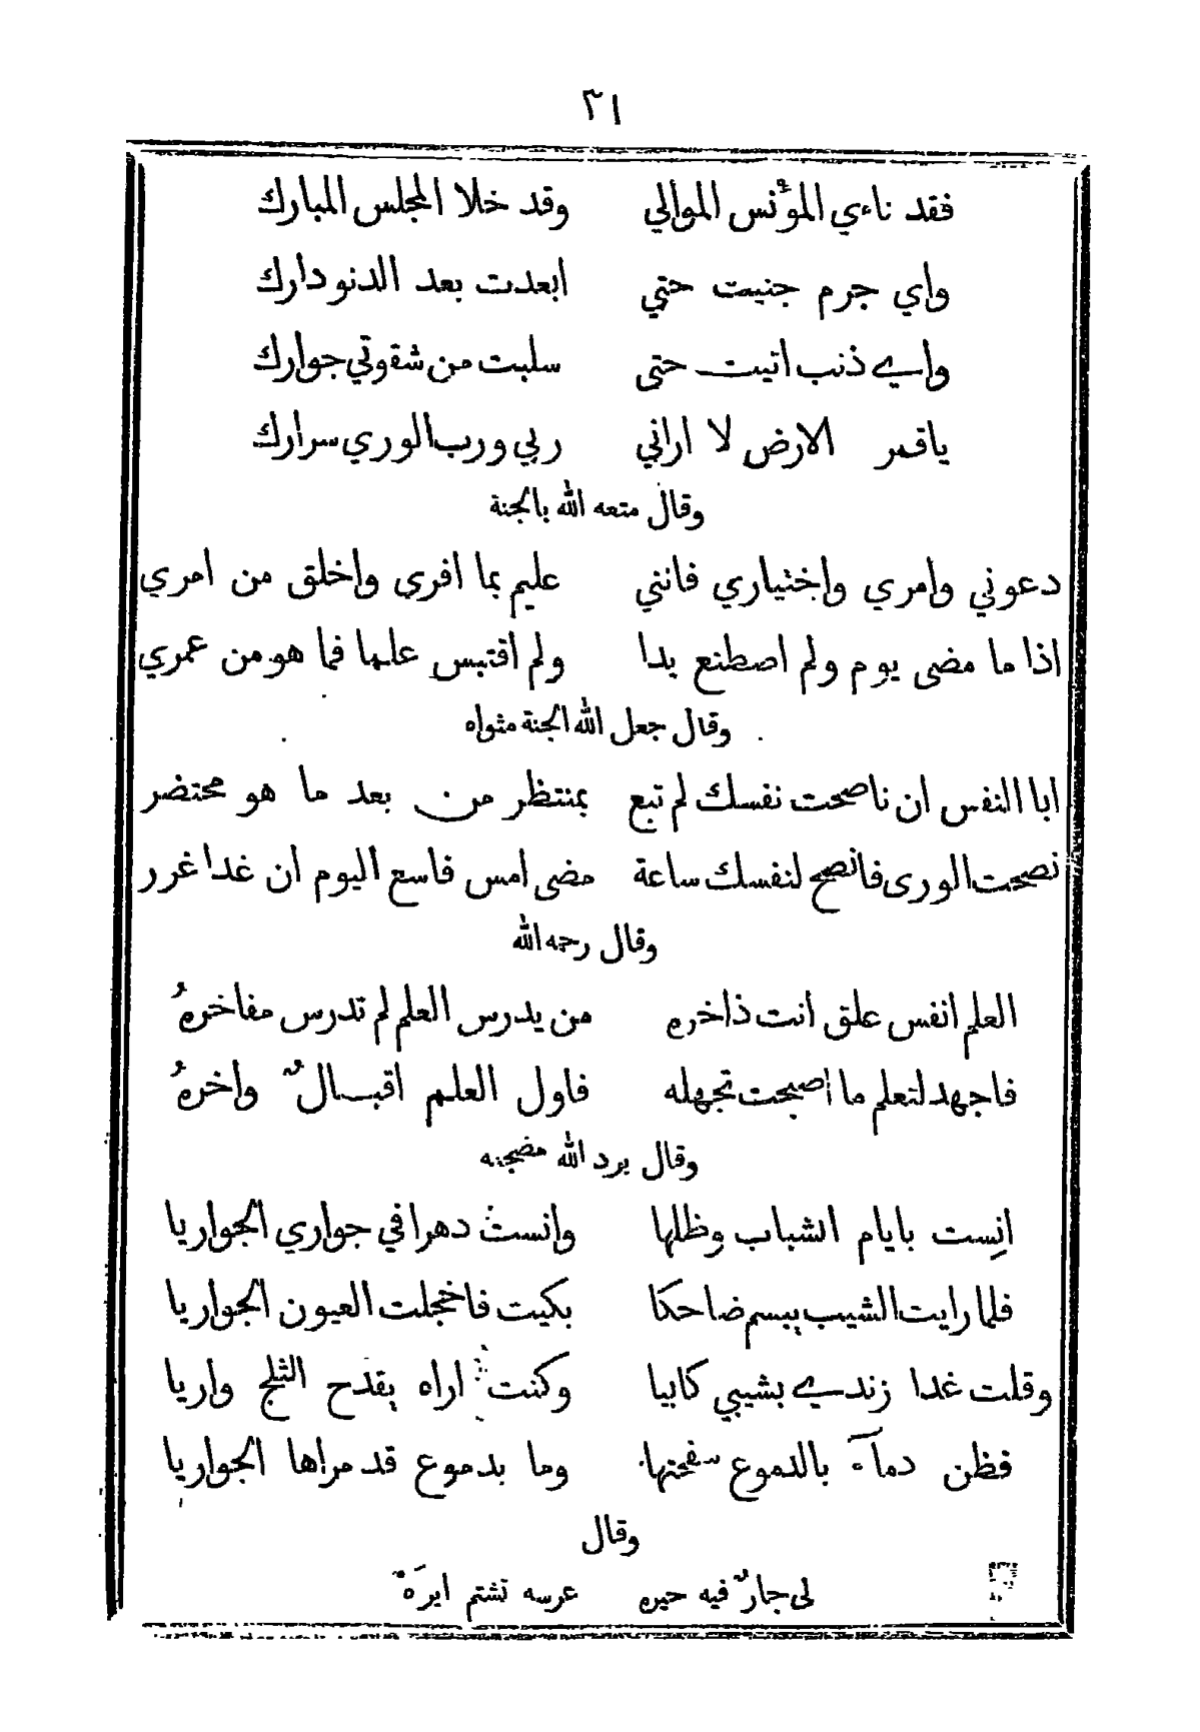 ٣١
فقد ناءي المؤنس الموالي وقد خلا المجلس المبارك
واي جرم جنيت حتي ابعدت بعد الدنو دارك
واي ذنب اتيت حتى سلبت من شقوتي جوارك
ياقمر الارض لا اراني ربي ورب الوري سرارك
وقال متعه الله بالجنة
دعوني وامري واختياري فانني عليم بما افرى واخلق من امري
اذا ما مضى يوم ولم اصطنع يدا ولم اقتبس علما فما هو من عمري
وقال جعل الله الجنة مثواه
ابا النفس ان ناصحت نفسك لم تبع بمنتظر من بعد ما هو محتضر
نصحت الورى فانصح لنفسك ساعة مضى امس فاسع اليوم ان غدا غرر
وقال رحمه الله
العلم انفس علق انت ذاخره من يدرس العلم لم تدرس مفاخرهُ
فاجهد لتعلم ما اصبحت تجهله فاول العلم اقبالٌ واخرهُ
وقال برد الله مضجعه
انِست بايام الشباب وظلها وانست دهرا في جواري الجواريا
فلما رايت الشيب يبسم ضاحكا بكيت فاخجلت العيون الجواريا
وقلت غدا زندي بشيبي كابيا وكنت اراه يقدح الثلج واريا
فظن دمآء بالدموع سفحتها وما بدموع قد مراها الجواريا
وقال
لى جارٌ فيه حيره عرسه تشتم ايرَهٌ